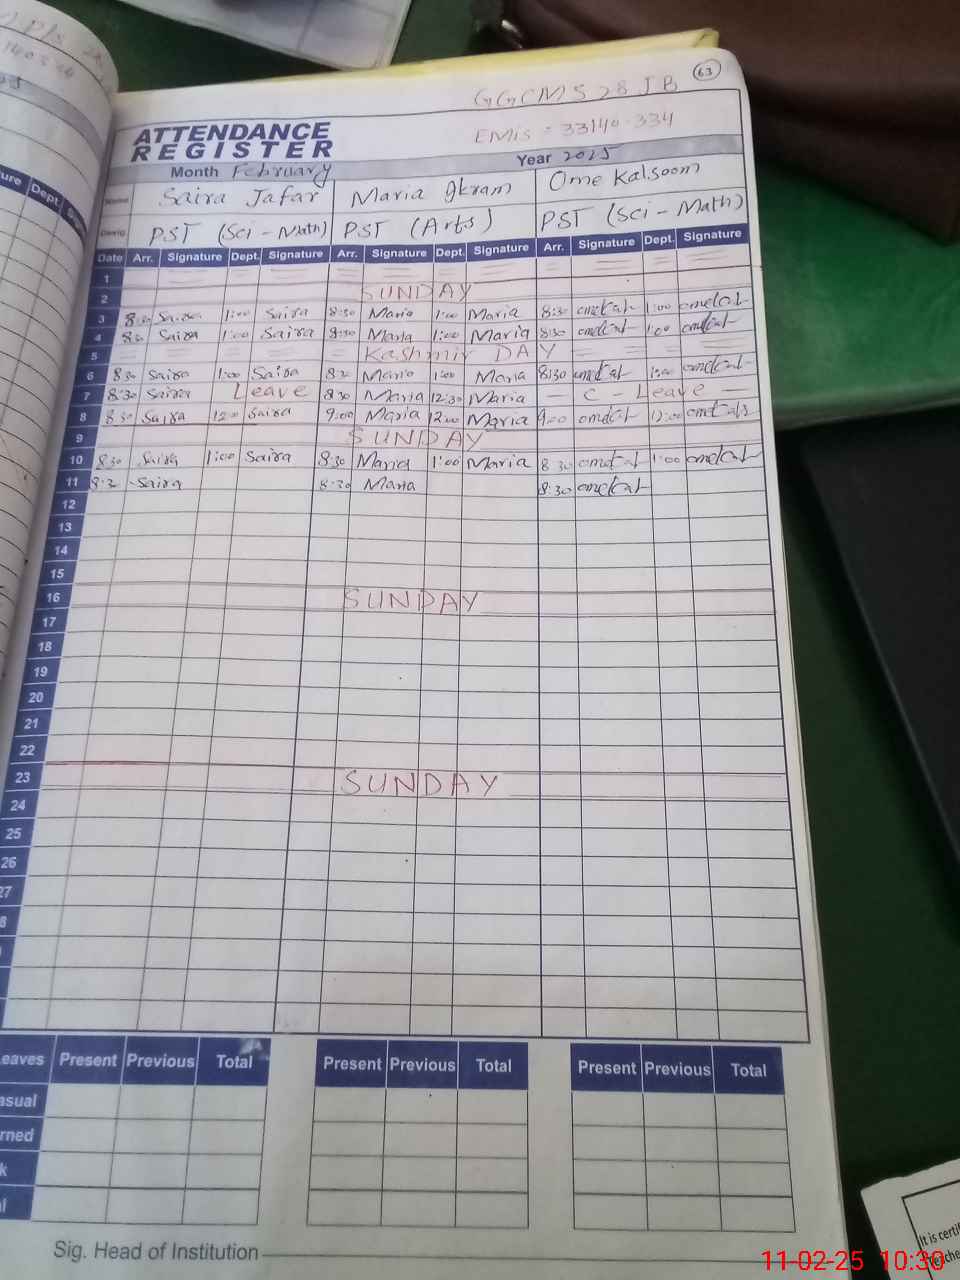 63
GGCMS 28 JB
EMIS = 33140-334
ATTENDANCE
REGISTER
Month February Year 2025
Name Saira Jafar Maria Ikram Ome Kalsoom
Desig. PST (Sci - Math) PST (Arts) PST (Sci - Math)
Date Arr. Signature Dept. Signature Arr. Signature Dept. Signature Arr. Signature Dept. Signature
1
2 SUNDAY
3 8:30 Saira 1:00 Saira 8:30 Maria 1:00 Maria 8:30 1:00
4 8:30 Saira 1:00 Saira 8:30 Maria 1:00 Maria 8:30 1:00
5 Kashmir DAY
6 8:30 Saira 1:00 Saira 8:30 Maria 1:00 Maria 8:30 1:00
7 8:30 Saira Leave 8:30 Maria 12:30 Maria - C - Leave -
8 8:30 Saira 12:00 Saira 9:00 Maria 12:00 Maria 9:00 12:00
9 SUNDAY
10 8:30 Saira 1:00 Saira 8:30 Maria 1:00 Maria 8:30 1:00
11 8:30 Saira 8:30 Maria 8:30
12
13
14
15
16 SUNDAY
17
18
19
20
21
22
23 SUNDAY
24
25
26
27
eaves Present Previous Total Present Previous Total Present Previous Total
asual
rned
k
Sig. Head of Institution
It is certi
11-02-25 10:30